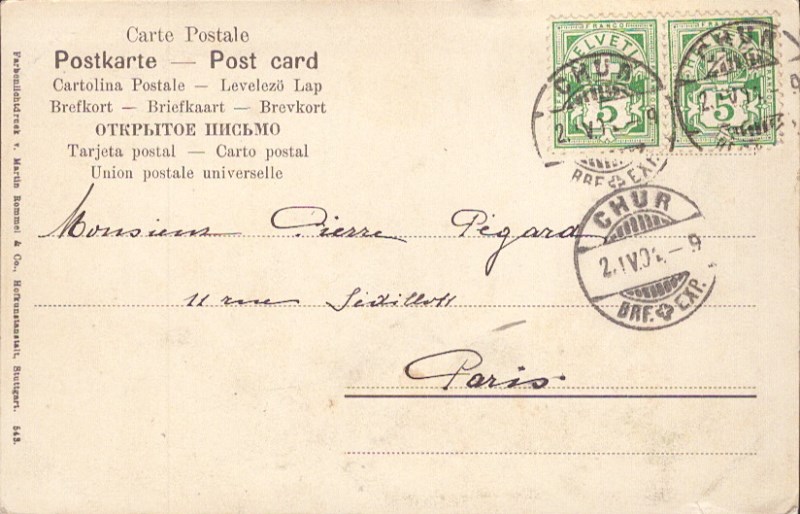 Carte Postale
Postkarte — Post card
Cartolina Postale — Levelező Lap
Brefkort — Briefkaart — Brevkort
ОТКРЫТОЕ ПИСЬМО
Tarjeta postal — Carto postal
Union postale universelle
FRANCO
HELVETIA
5
CHUR
BRF. EXP.
FRANCO
5
CHUR
CHUR
2.IV.04.–9
BRF. EXP.
Monsieur Pierre Pégard
11 rue Sédillot
Paris
Farbenlichtdruck v. Martin Rommel & Co., Hofkunstanstalt, Stuttgart. 543.